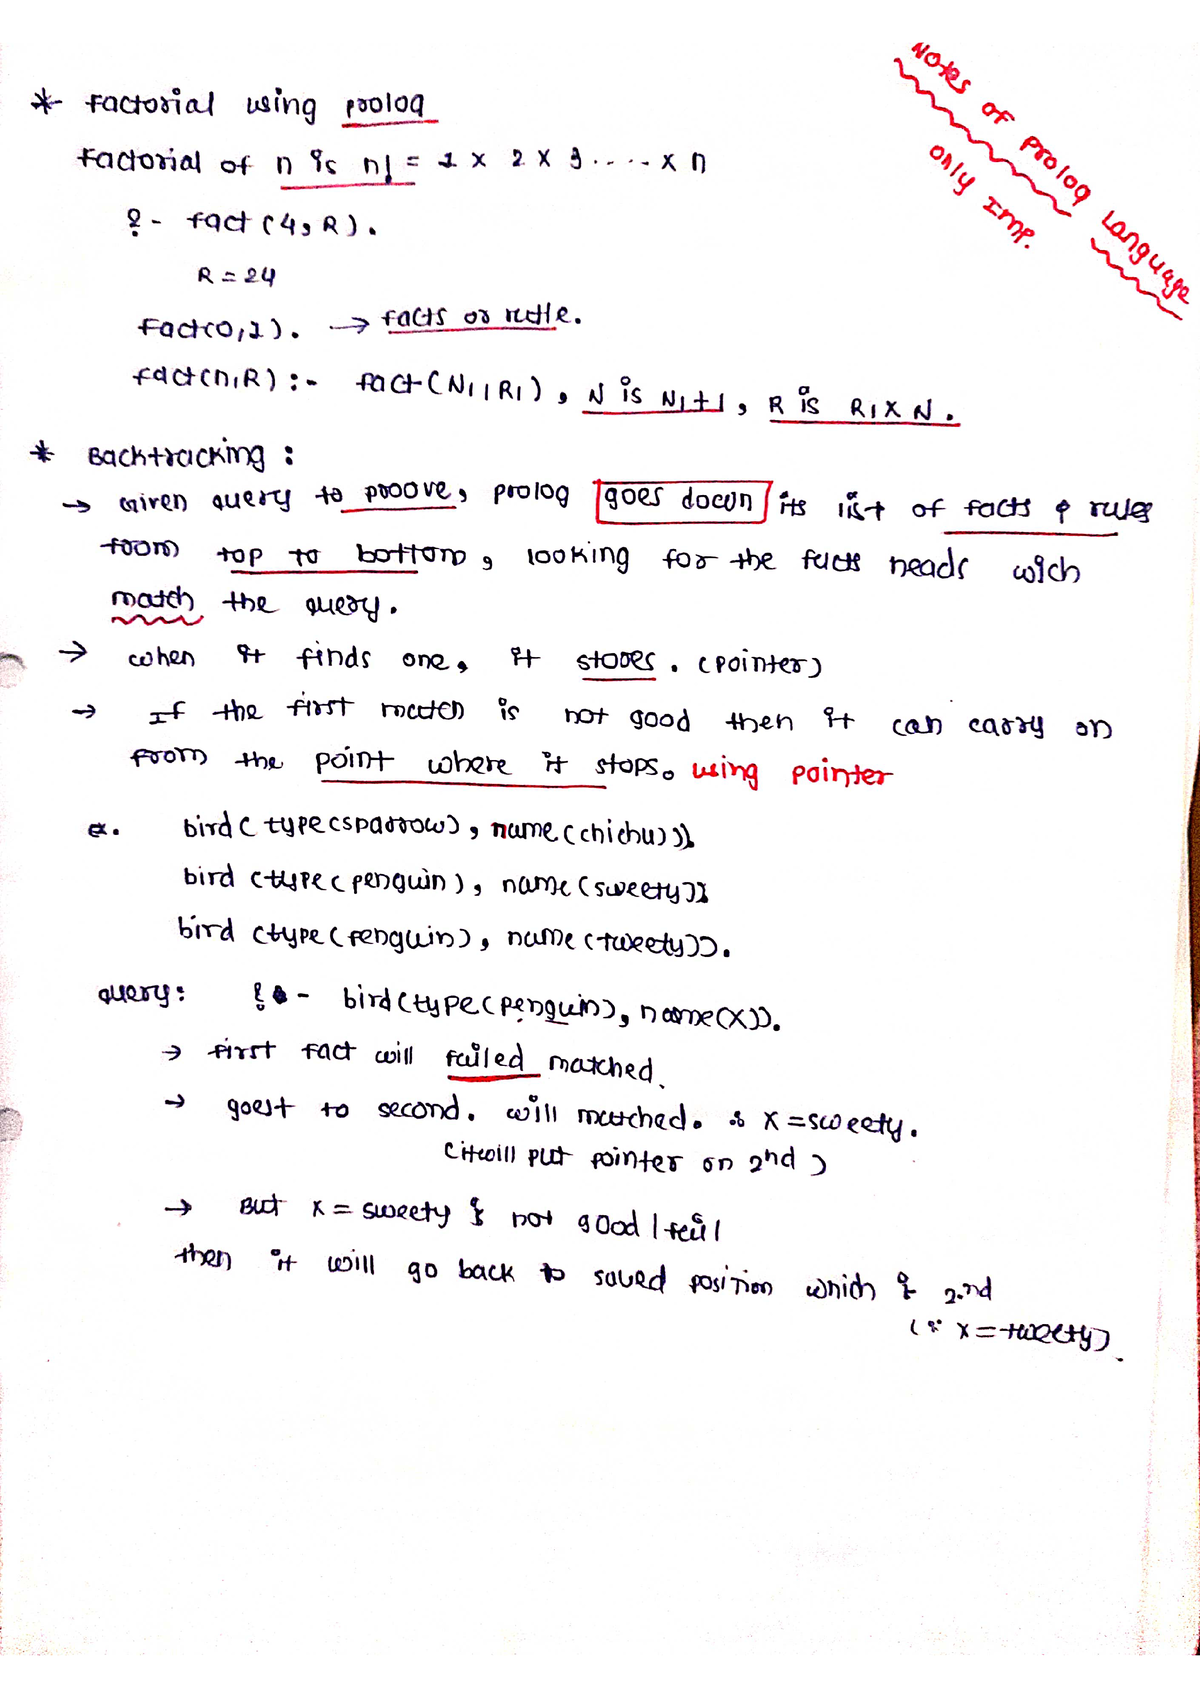 Notes of Prolog Language
only Imp.
* Factorial using prolog
Factorial of n is n! = 1 x 2 x 3 ..... x n
?- fact (4, R).
R = 24
Fact(0,1). → facts or rule.
fact(n,R) :- fact (N1, R1), N is N1+1, R is R1 x N.
* Backtracking :
→ Given query to proove, prolog goes down its list of facts & rules
from top to bottom, looking for the facts heads wich
match the query.
→ when it finds one, it stores. (pointer)
→ If the first match is not good then it can carry on
from the point where it stops. using pointer
ex. bird ( type(sparrow), name (chichu)).
bird (type ( penguin ), name (sweety)).
bird (type ( penguin), name (tweety)).
query: ?- bird (type (penguin), name(X)).
→ first fact will failed matched.
→ goest to second. will matched. X = sweety.
(it will put pointer on 2nd )
→ But X = sweety is not good / fail
then it will go back to saved position which is 2nd
( X = tweety).